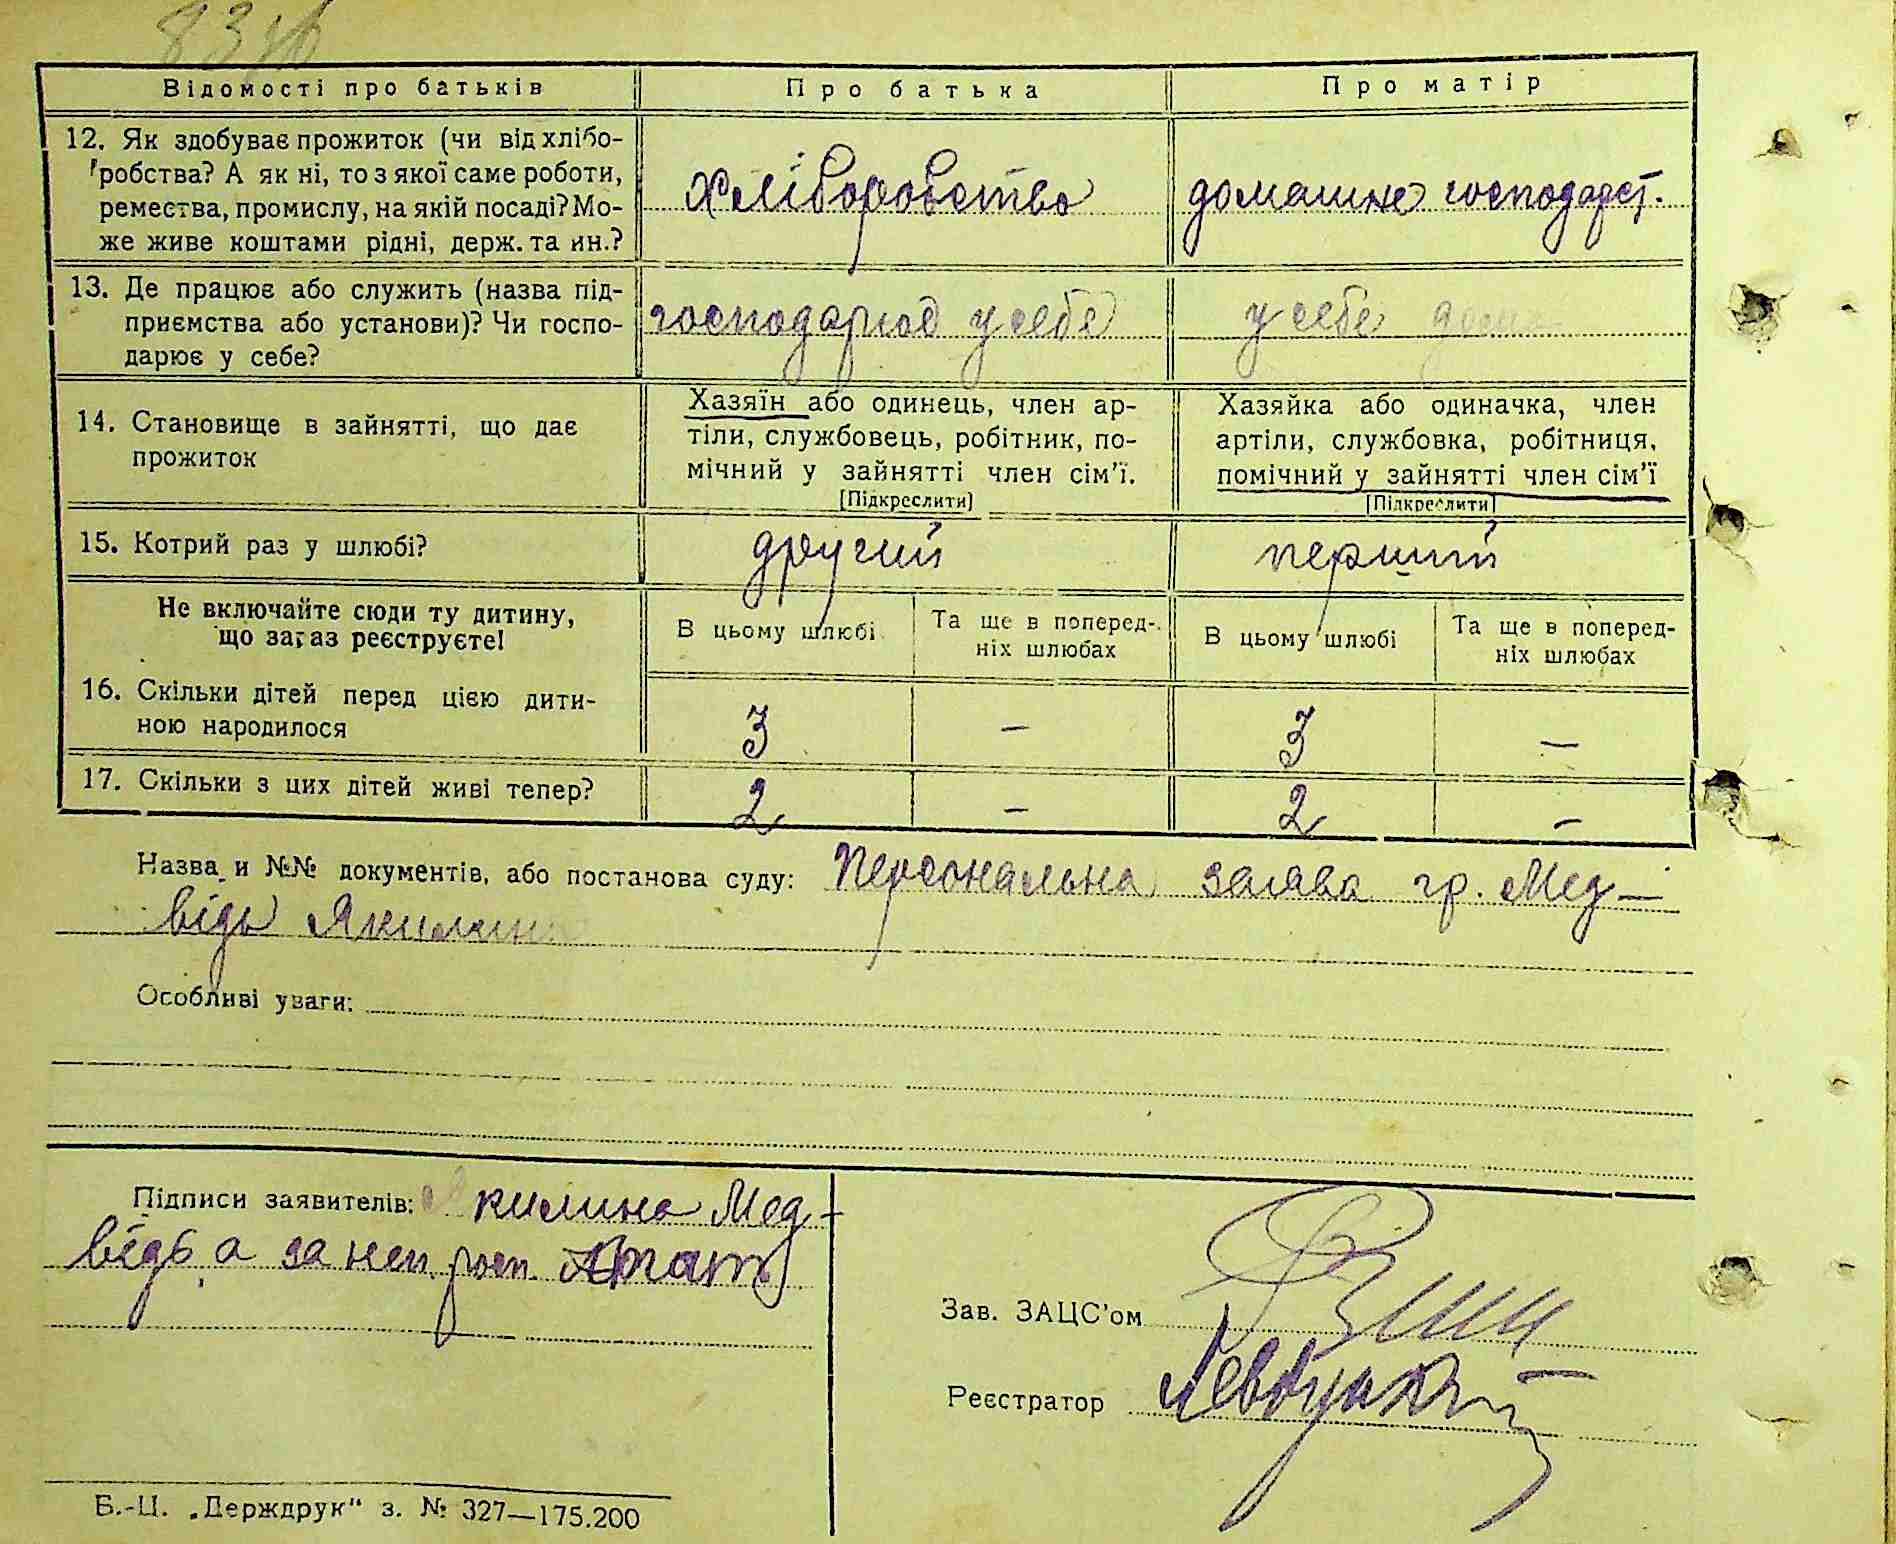 Відомості про батьків
Про батька
Про матір
12. Як здобуває прожиток (чи від хлібо-
робства? А як ні, то з якої саме роботи,
ремества, промислу, на якій посаді? Мо-
же живе коштами рідні, держ. та ин.?
хліборобство
домашнє господарст.
13. Де працює або служить (назва під-
приємства або установи)? Чи госпо-
дарює у себе?
господарює у себе
у себе дома
14. Становище в зайнятті, що дає
прожиток
Хазяїн або одинець, член ар-
тіли, службовець, робітник, по-
мічний у зайнятті член сім'ї.
[Підкреслити]
Хазяйка або одиначка, член
артіли, службовка, робітниця,
помічний у зайнятті член сім'ї
[Підкреслити]
15. Котрий раз у шлюбі?
другий
перший
Не включайте сюди ту дитину,
що зараз реєструєте!
В цьому шлюбі
Та ще в поперед-
ніх шлюбах
В цьому шлюбі
Та ще в поперед-
ніх шлюбах
16. Скільки дітей перед цією дити-
ною народилося
3
–
3
–
17. Скільки з цих дітей живі тепер?
2
–
2
–
Назва и №№ документів, або постанова суду: Персональна заява гр. Мед-
відь Якилина
Особливі уваги:
Підписи заявителів: Якилина Мед-
відь а за неп. росп.
Зав. ЗАЦС'ом
Реєстратор
Б.-Ц. „Держдрук" з. № 327—175.200